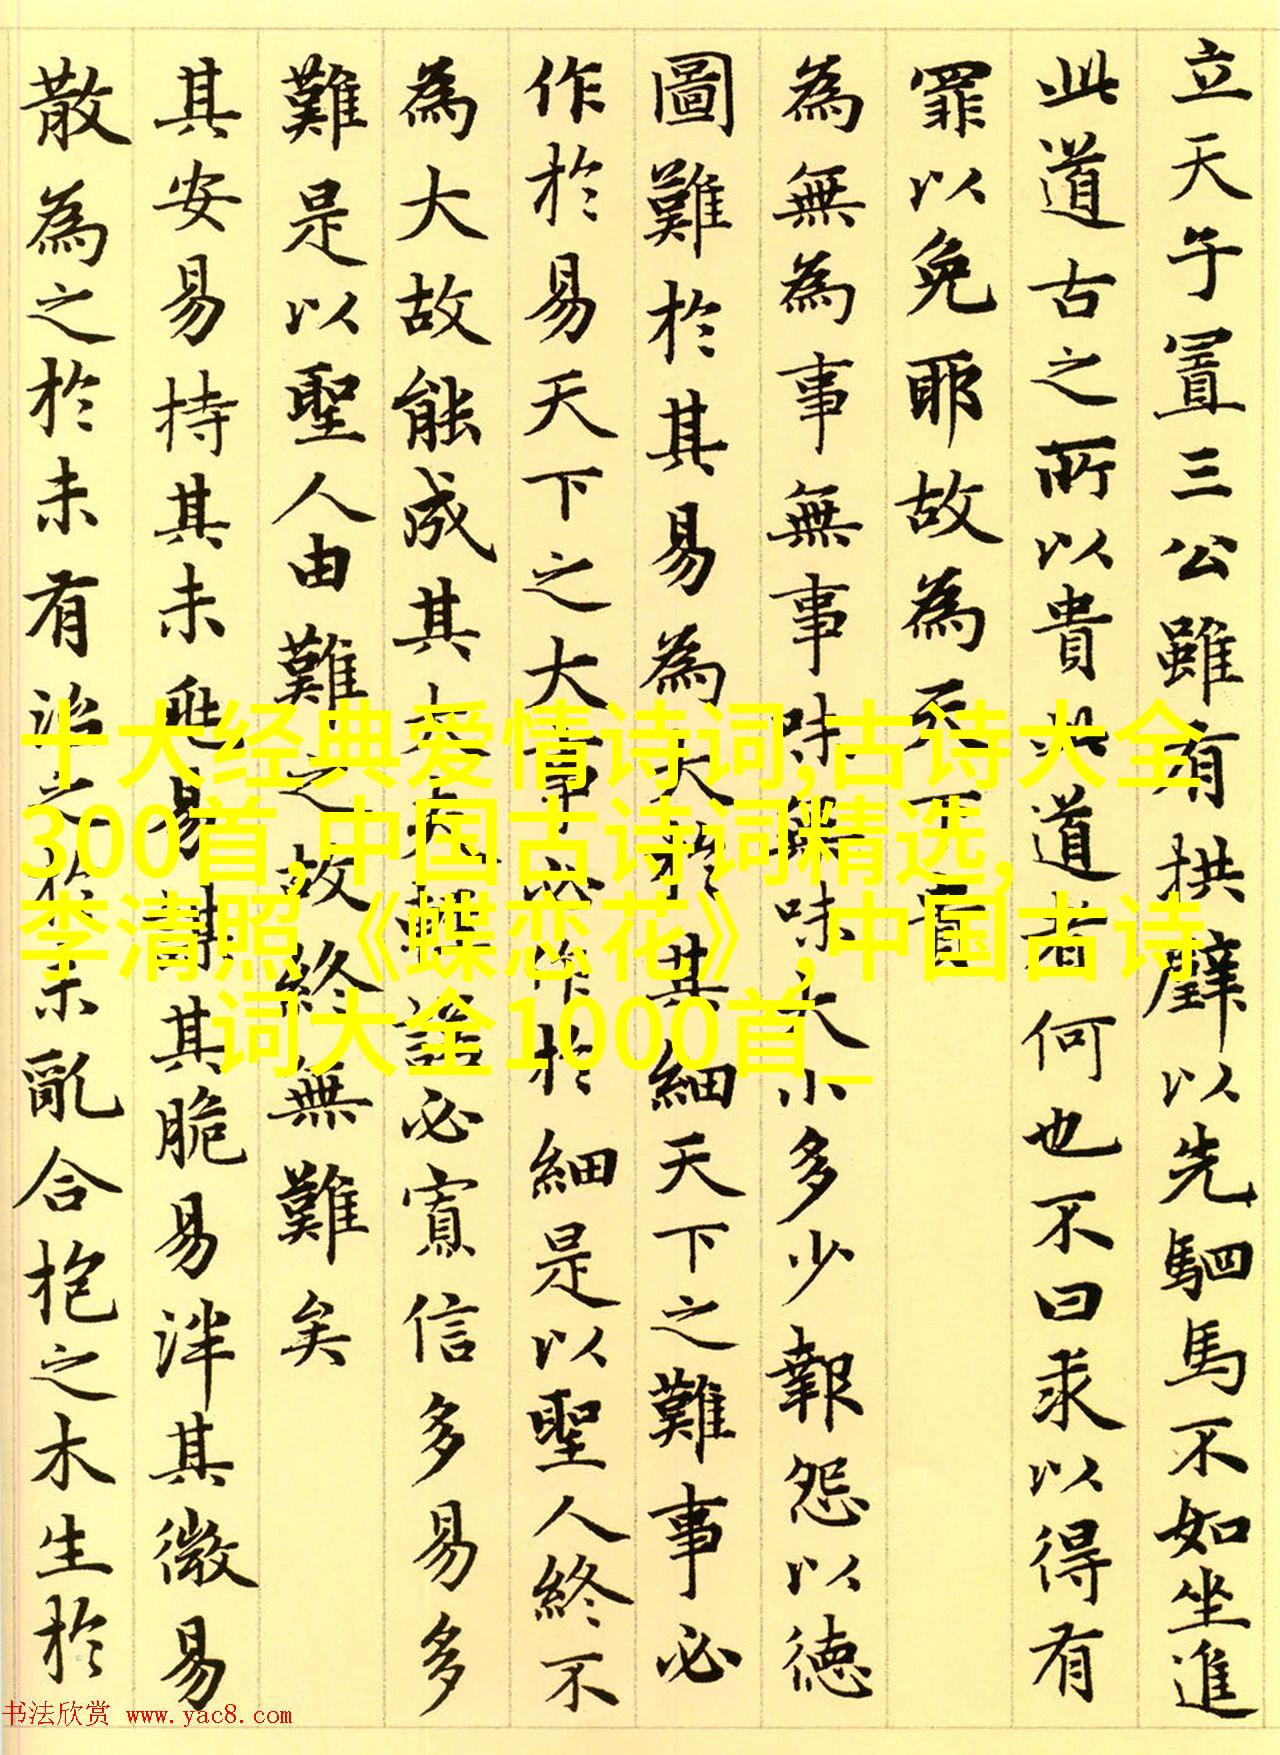 立天子置三公雖有拱璧以先駟馬不如坐進
此道古之所以貴此道者何也不曰求以得有
罪以免耶故為天下貴
為無為事無事味無味大小多少報怨以德
圖難於其易為大於其細天下之難事必
作於易天下之大事必作於細是以聖人終不
為大故能成其大夫輕諾必寡信多易多
難是以聖人由難之故終無難矣
其安易持其未兆易謀其脆易泮其微易
散為之於未有治之於未亂合抱之木生於
十大经典爱情诗词,古诗大全
300首,中国古诗词精选,
李清照《蝶恋花》,中国古诗
词大全1000首_
书法欣赏 www.yac8.com